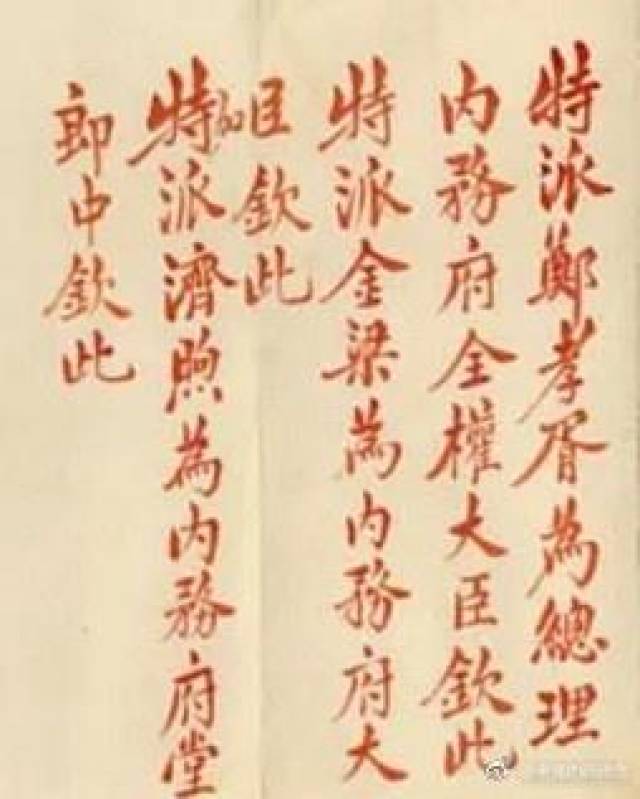 特派鄭孝胥為總理
内務府全權大臣欽此
特派金梁為内務府大
臣欽此
特派濟煦為内務府堂
郎中欽此